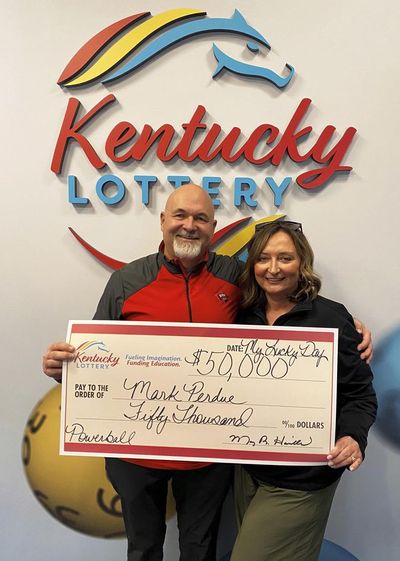 Kentucky
LOTTERY
Kentucky
LOTTERY
Fueling Imagination.
Funding Education.
DATE: My Lucky Day
$50,000
PAY TO THE
ORDER OF
Mark Perdue
Fifty Thousand
00/100 DOLLARS
Powerball